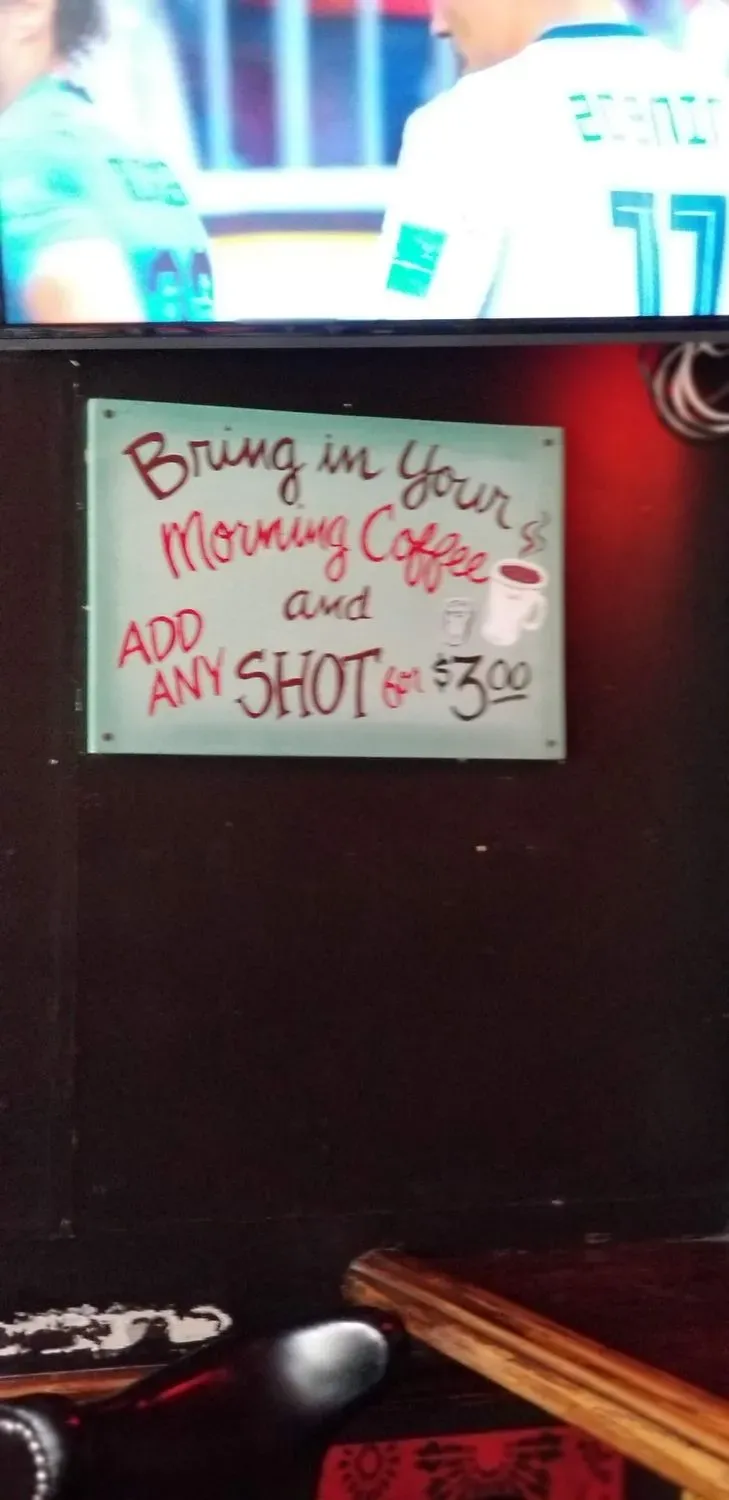 17
Bring in Your
Morning Coffee
and
ADD
ANY SHOT for $3.00